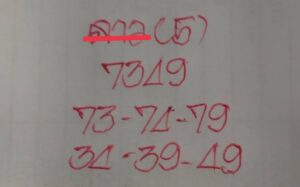 ลาว (5)
7349
73-74-79
34-39-49